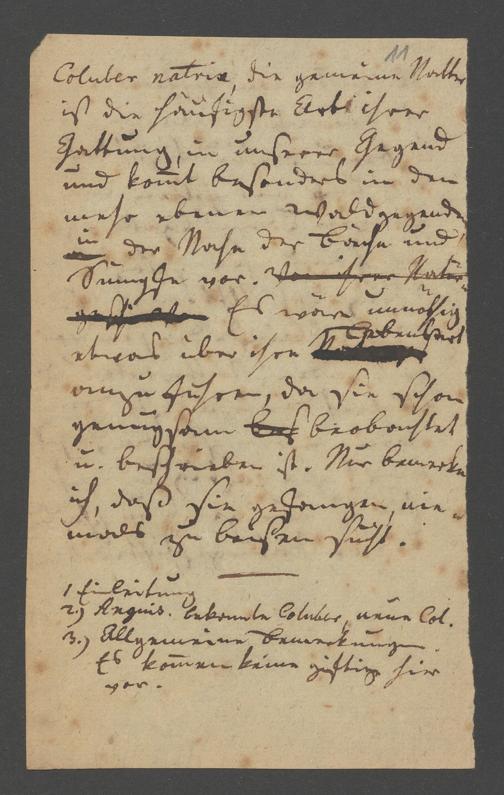 11
Coluber natrix, die gemeine Natter
ist die häufigste Art ihrer
Gattung, in unserer Gegend
und kommt besonders in den
mehr ebenen Waldgegenden,
in der Nähe der Bäche und
Sümpfe vor. Von ihrer Natur-
Es wäre unnöthig
etwas über ihre Lebensart
anzuführen, da sie schon
genugsam bes beobachtet
u. beschrieben ist. Nur bemerke
ich, daß sie gefangen, nie-
mals zu beißen sucht.
1 Einleitung
2.) Anguis. bekannte Coluber, neue Col.
3.) Allgemeine Bemerkungen.
Es kommen keine giftige hier
vor.